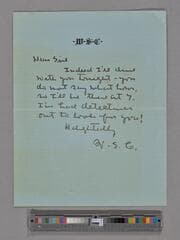 ·W·S·C·
Dear Gene
Indeed I'll dine
with you tonight - you
do not say what hour,
so I'll be there at 7.
I've had detectives
out to look for you!
Delightedly
W. S. C.